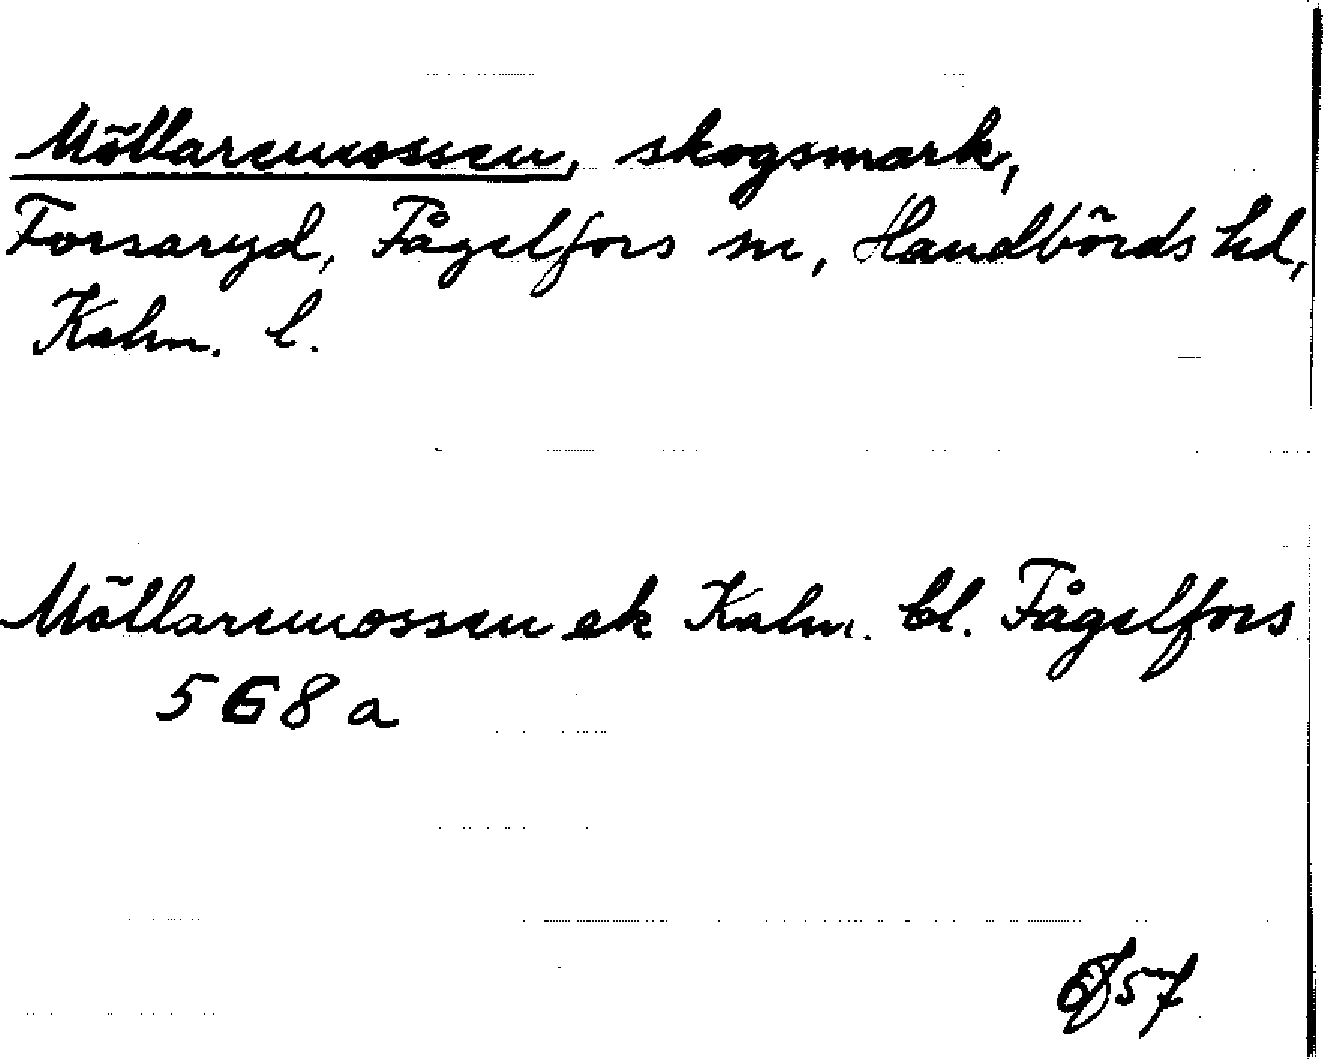 Möllaremossen, skogsmark,
Forsaryd, Fågelfors sn, Handbörds hd,
Kalm. l.
Möllaremossen ek Kalm. bl. Fågelfors
568a
57